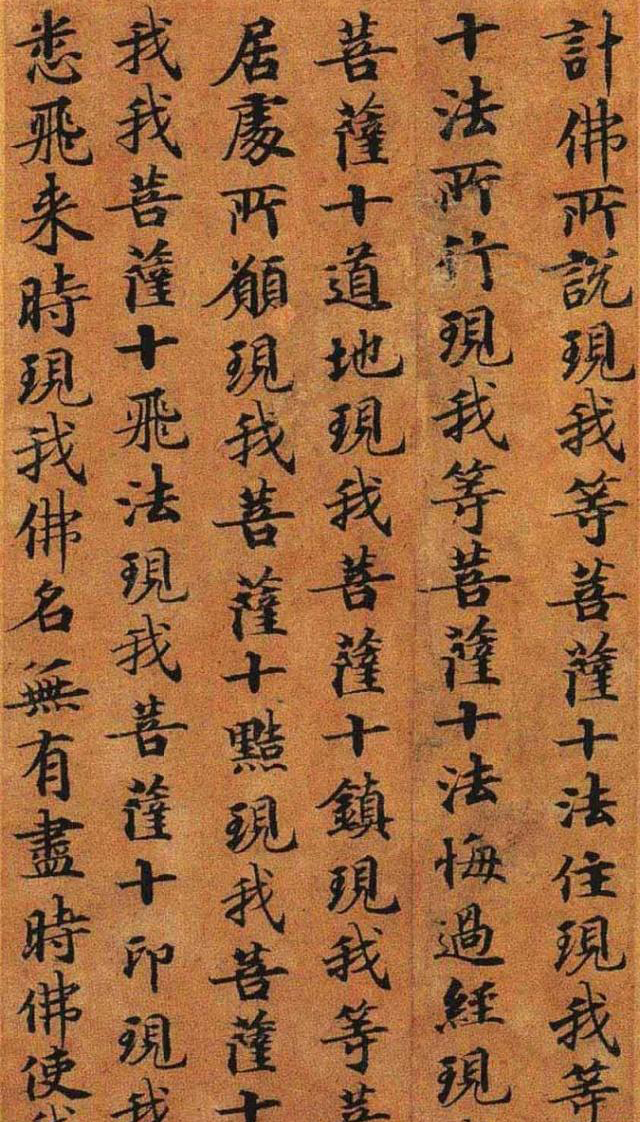 計佛所說現我等菩薩十法住現我等
十法所行現我等菩薩十法悔過經現
菩薩十道地現我菩薩十鎮現我等菩
居處所願現我菩薩十黠現我菩薩十
我我菩薩十飛法現我菩薩十印現我
悉飛来時現我佛名無有盡時佛使我